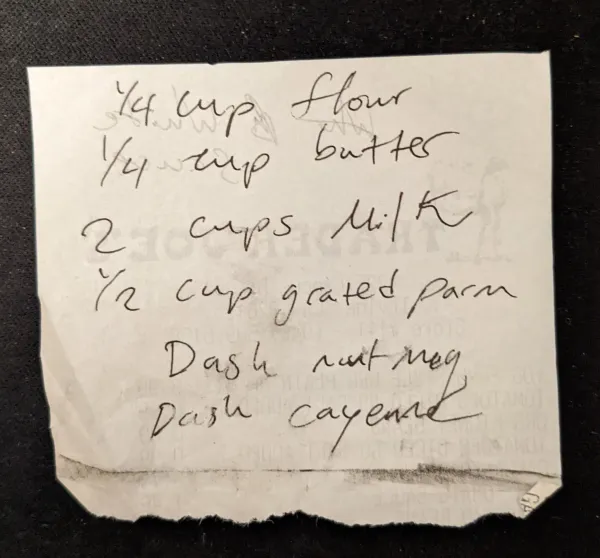 1/4 cup flour
1/4 cup butter
2 cups Milk
1/2 cup grated parm
Dash nutmeg
Dash cayenne
TRADER JOE'S